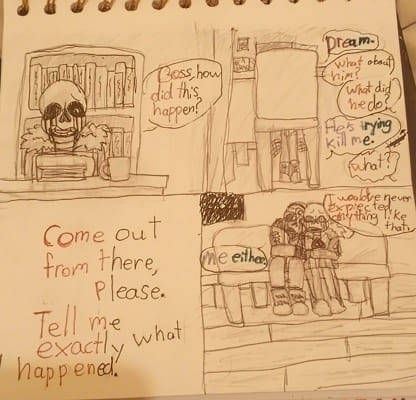 Boss, how
did this
happen?
Dream.
What about
him?
What did
he do?
He's trying
kill me.
What?
Come out
from there,
Please.
Tell me
exactly what
happened!
I would've never
expected
anything like
that.
Me either.